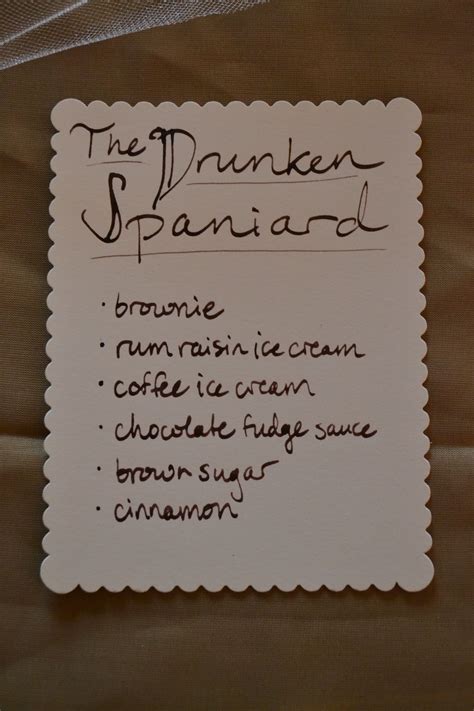 The Drunken
Spaniard
· brownie
· rum raisin ice cream
· coffee ice cream
· chocolate fudge sauce
· brown sugar
· cinnamon